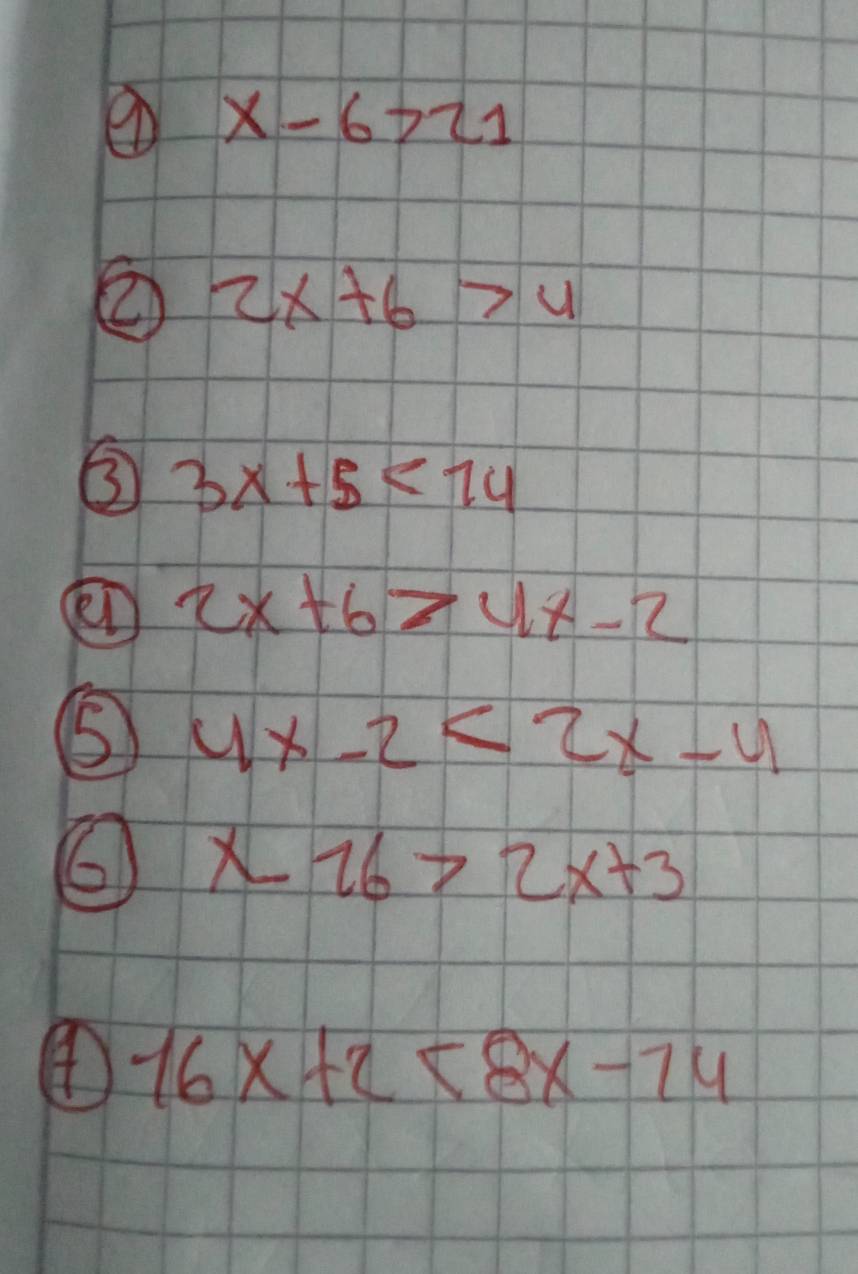 ① x - 6 > 21
② 2x + 6 > 4
③ 3x + 5 < 14
④ 2x + 6 > 4x - 2
⑤ 4x - 2 < 2x - 4
⑥ x - 16 > 2x + 3
⑦ 16x + 2 < 8x - 14